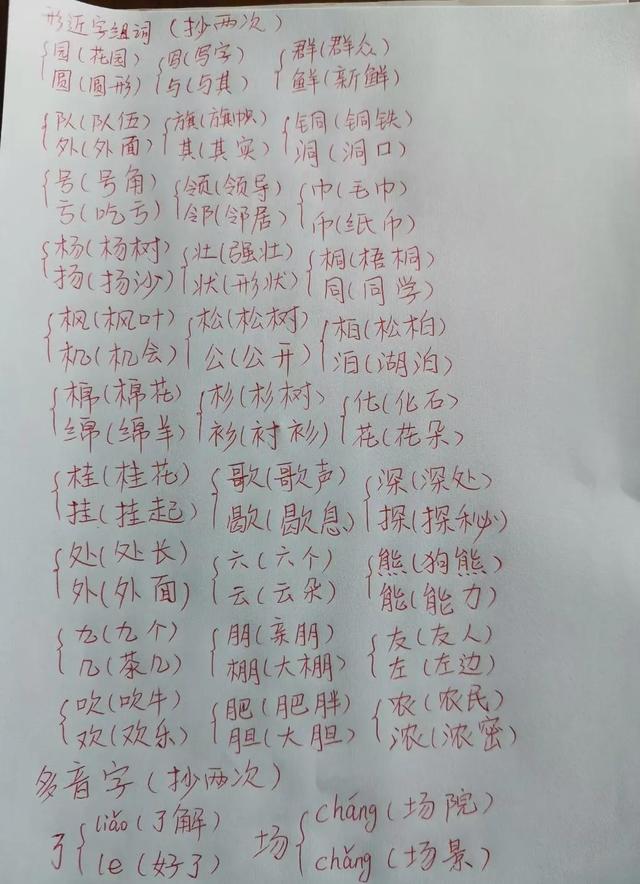 形近字组词（抄两次）
园(花园) 写(写字) 群(群众)
圆(圆形) 与(与其) 鲜(新鲜)
队(队伍) 旗(旗帜) 铜(铜铁)
外(外面) 其(其实) 洞(洞口)
号(号角) 领(领导) 巾(毛巾)
亏(吃亏) 邻(邻居) 币(纸币)
杨(杨树) 壮(强壮) 桐(梧桐)
扬(扬沙) 状(形状) 同(同学)
枫(枫叶) 松(松树) 柏(松柏)
机(机会) 公(公开) 泊(湖泊)
棉(棉花) 杉(杉树) 化(化石)
绵(绵羊) 衫(衬衫) 花(花朵)
桂(桂花) 歌(歌声) 深(深处)
挂(挂起) 歇(歇息) 探(探秘)
处(处长) 六(六个) 熊(狗熊)
外(外面) 云(云朵) 能(能力)
九(九个) 朋(亲朋) 友(友人)
几(茶几) 棚(大棚) 左(左边)
吹(吹牛) 肥(肥胖) 农(农民)
欢(欢乐) 胆(大胆) 浓(浓密)
多音字（抄两次）
了 liǎo(了解) 场 cháng(场院)
le(好了) chǎng(场景)